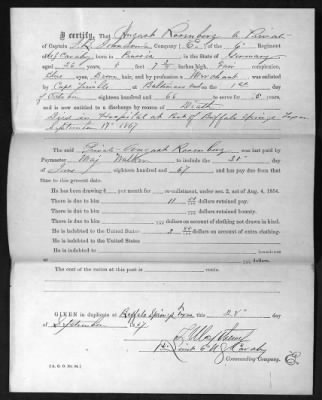 I certify, That Joseph Rosenburg a Private
of Captain Company ( E ) of the 6" Regiment
of Cavalry born in Prussia in the State of Germany
aged 26 years, 5 feet 7 1/2 inches high, Fair complexion,
Blue eyes, Brown hair, and by profession a Merchant was enlisted
by Capt at Baltimore on the 1st day
of October eighteen hundred and 66 to serve for 5 years,
and is now entitled to a discharge by reason of Death
Died in Hospital at Post of Buffalo Springs Texas
September 17" 1867
The said Private Joseph Rosenburg was last paid by
Paymaster Maj Walker to include the 30" day
of June eighteen hundred and 67 and has pay due from that
time to the present date.
He has been drawing $ per month for re-enlistment, under sec. 2, act of Aug. 4, 1854.
There is due to him 11 dollars retained pay.
There is due to him dollars retained bounty.
There is due to him dollars on account of clothing not drawn in kind.
He is indebted to the United States 3 dollars on account of extra clothing.
He is indebted to the United States
He is indebted to
at
The cost of the ration at this post is cents.
GIVEN in duplicate at Buffalo Springs Texas this day
of September 1867
1st Lieut 6" U S Cavalry
Commanding Company.
[A. G. O. No. 94.]